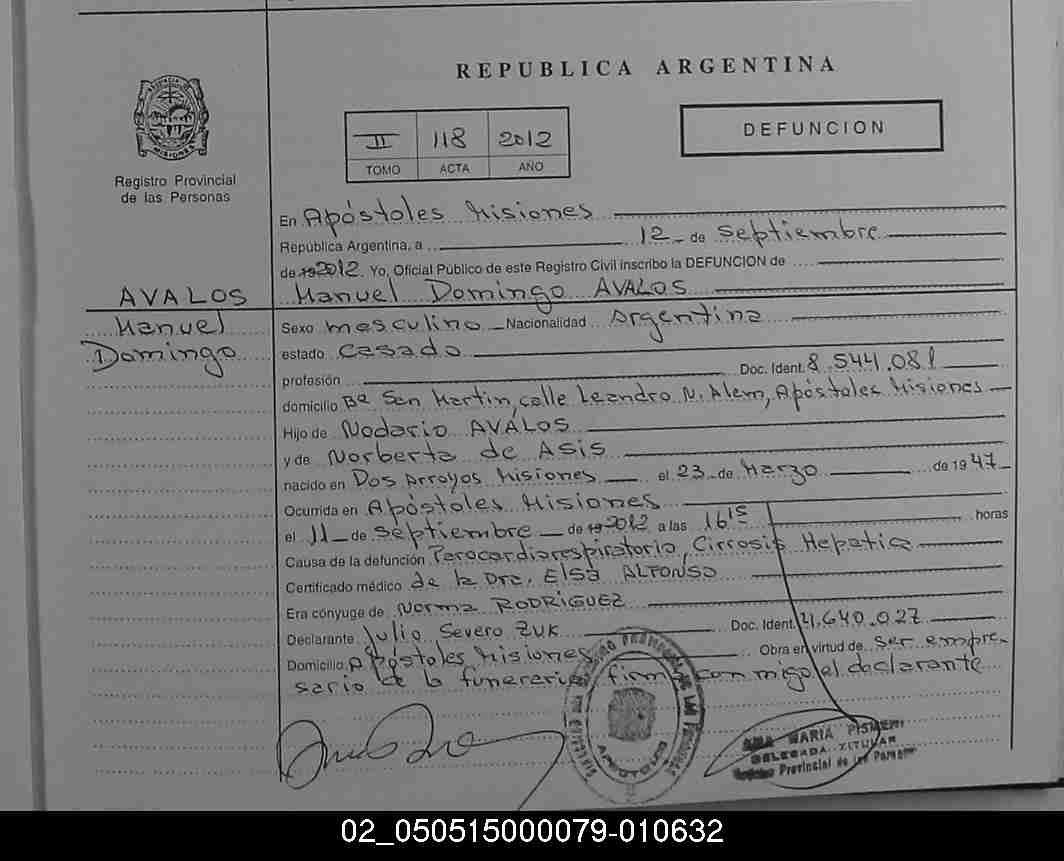 REPUBLICA ARGENTINA
II 118 2012
TOMO ACTA AÑO
DEFUNCION
PROVINCIA DE MISIONES
Registro Provincial
de las Personas
AVALOS
Manuel
Domingo
En Apóstoles Misiones
República Argentina, a 12 de Septiembre
de 19 2012. Yo, Oficial Público de este Registro Civil inscribo la DEFUNCION de
Manuel Domingo AVALOS
Sexo masculino Nacionalidad Argentina
estado Casado
profesión Doc. Ident. 8.544.081
domicilio Bº San Martin, calle Leandro N. Alem, Apóstoles Misiones
Hijo de Nodario AVALOS
y de Norberta de Asis
nacido en Dos Arroyos Misiones el 23 de Marzo de 1947
Ocurrida en Apóstoles Misiones
el 11 de Septiembre de 19 2012 a las 16 15 horas
Causa de la defunción Parocardiorespiratorio, Cirrosis Hepatica
Certificado médico de la Dra. Elsa ALFONSO
Era cónyuge de Norma RODRIGUEZ
Declarante Julio Severo ZUK Doc. Ident. 11.640.027
Domicilio Apóstoles Misiones Obra en virtud de ser empre-
sario de la funeraria firma con migo el declarante
ANA MARIA PISMENI
DELEGADA TITULAR
Registro Provincial de las Personas
02_050515000079-010632